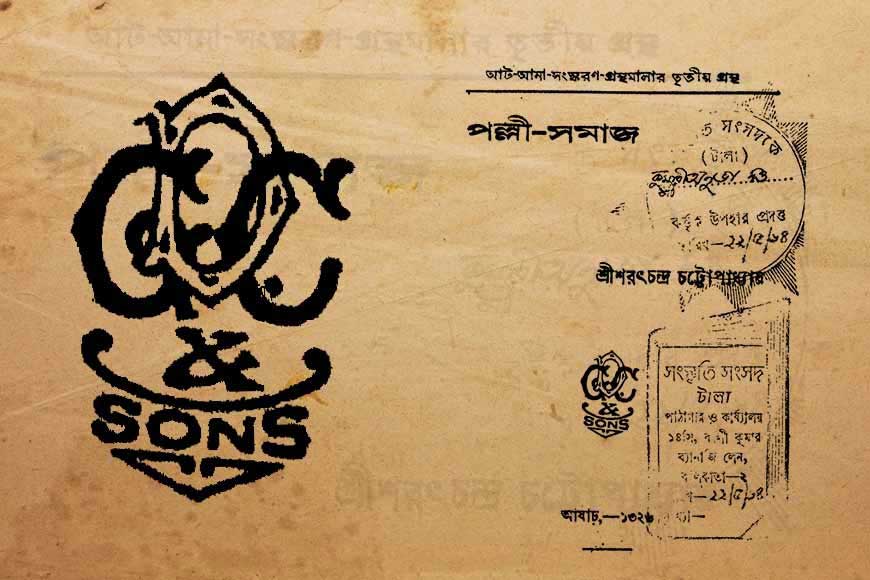 &
SONS
আট-আনা-সংস্করণ-গ্রন্থমালার তৃতীয় গ্রন্থ
পল্লী-সমাজ
সংসদকে
(টালা)
উপহার প্রদত্ত
২২/৫/৬৪
শ্রীশরৎচন্দ্র চট্টোপাধ্যায়
&
SONS
সংস্কৃতি সংসদ
টালা
পাঠাগার ও কার্য্যালয়
কুমার
ব্যানার্জি লেন,
কলিকাতা—২
২২/৫/৬৪
আষাঢ়,—১৩২৬